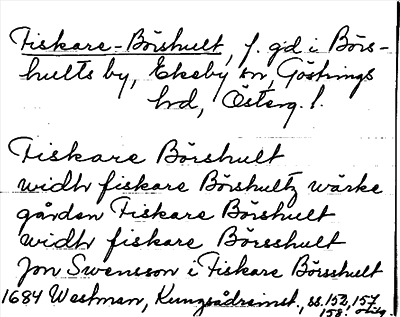 Fiskare-Börshult, f. gd i Börs-
hults by, Ekeby sn, Göstrings
hrd, Österg. l.
Fiskare Börshult
widh fiskare Börshultz wärke
gården Fiskare Börshult
widh fiskare Börsshult
Jon Swensson i Fiskare Börsshult
1684 Westman, Kungsådreinst., ss. 152, 157,
158.